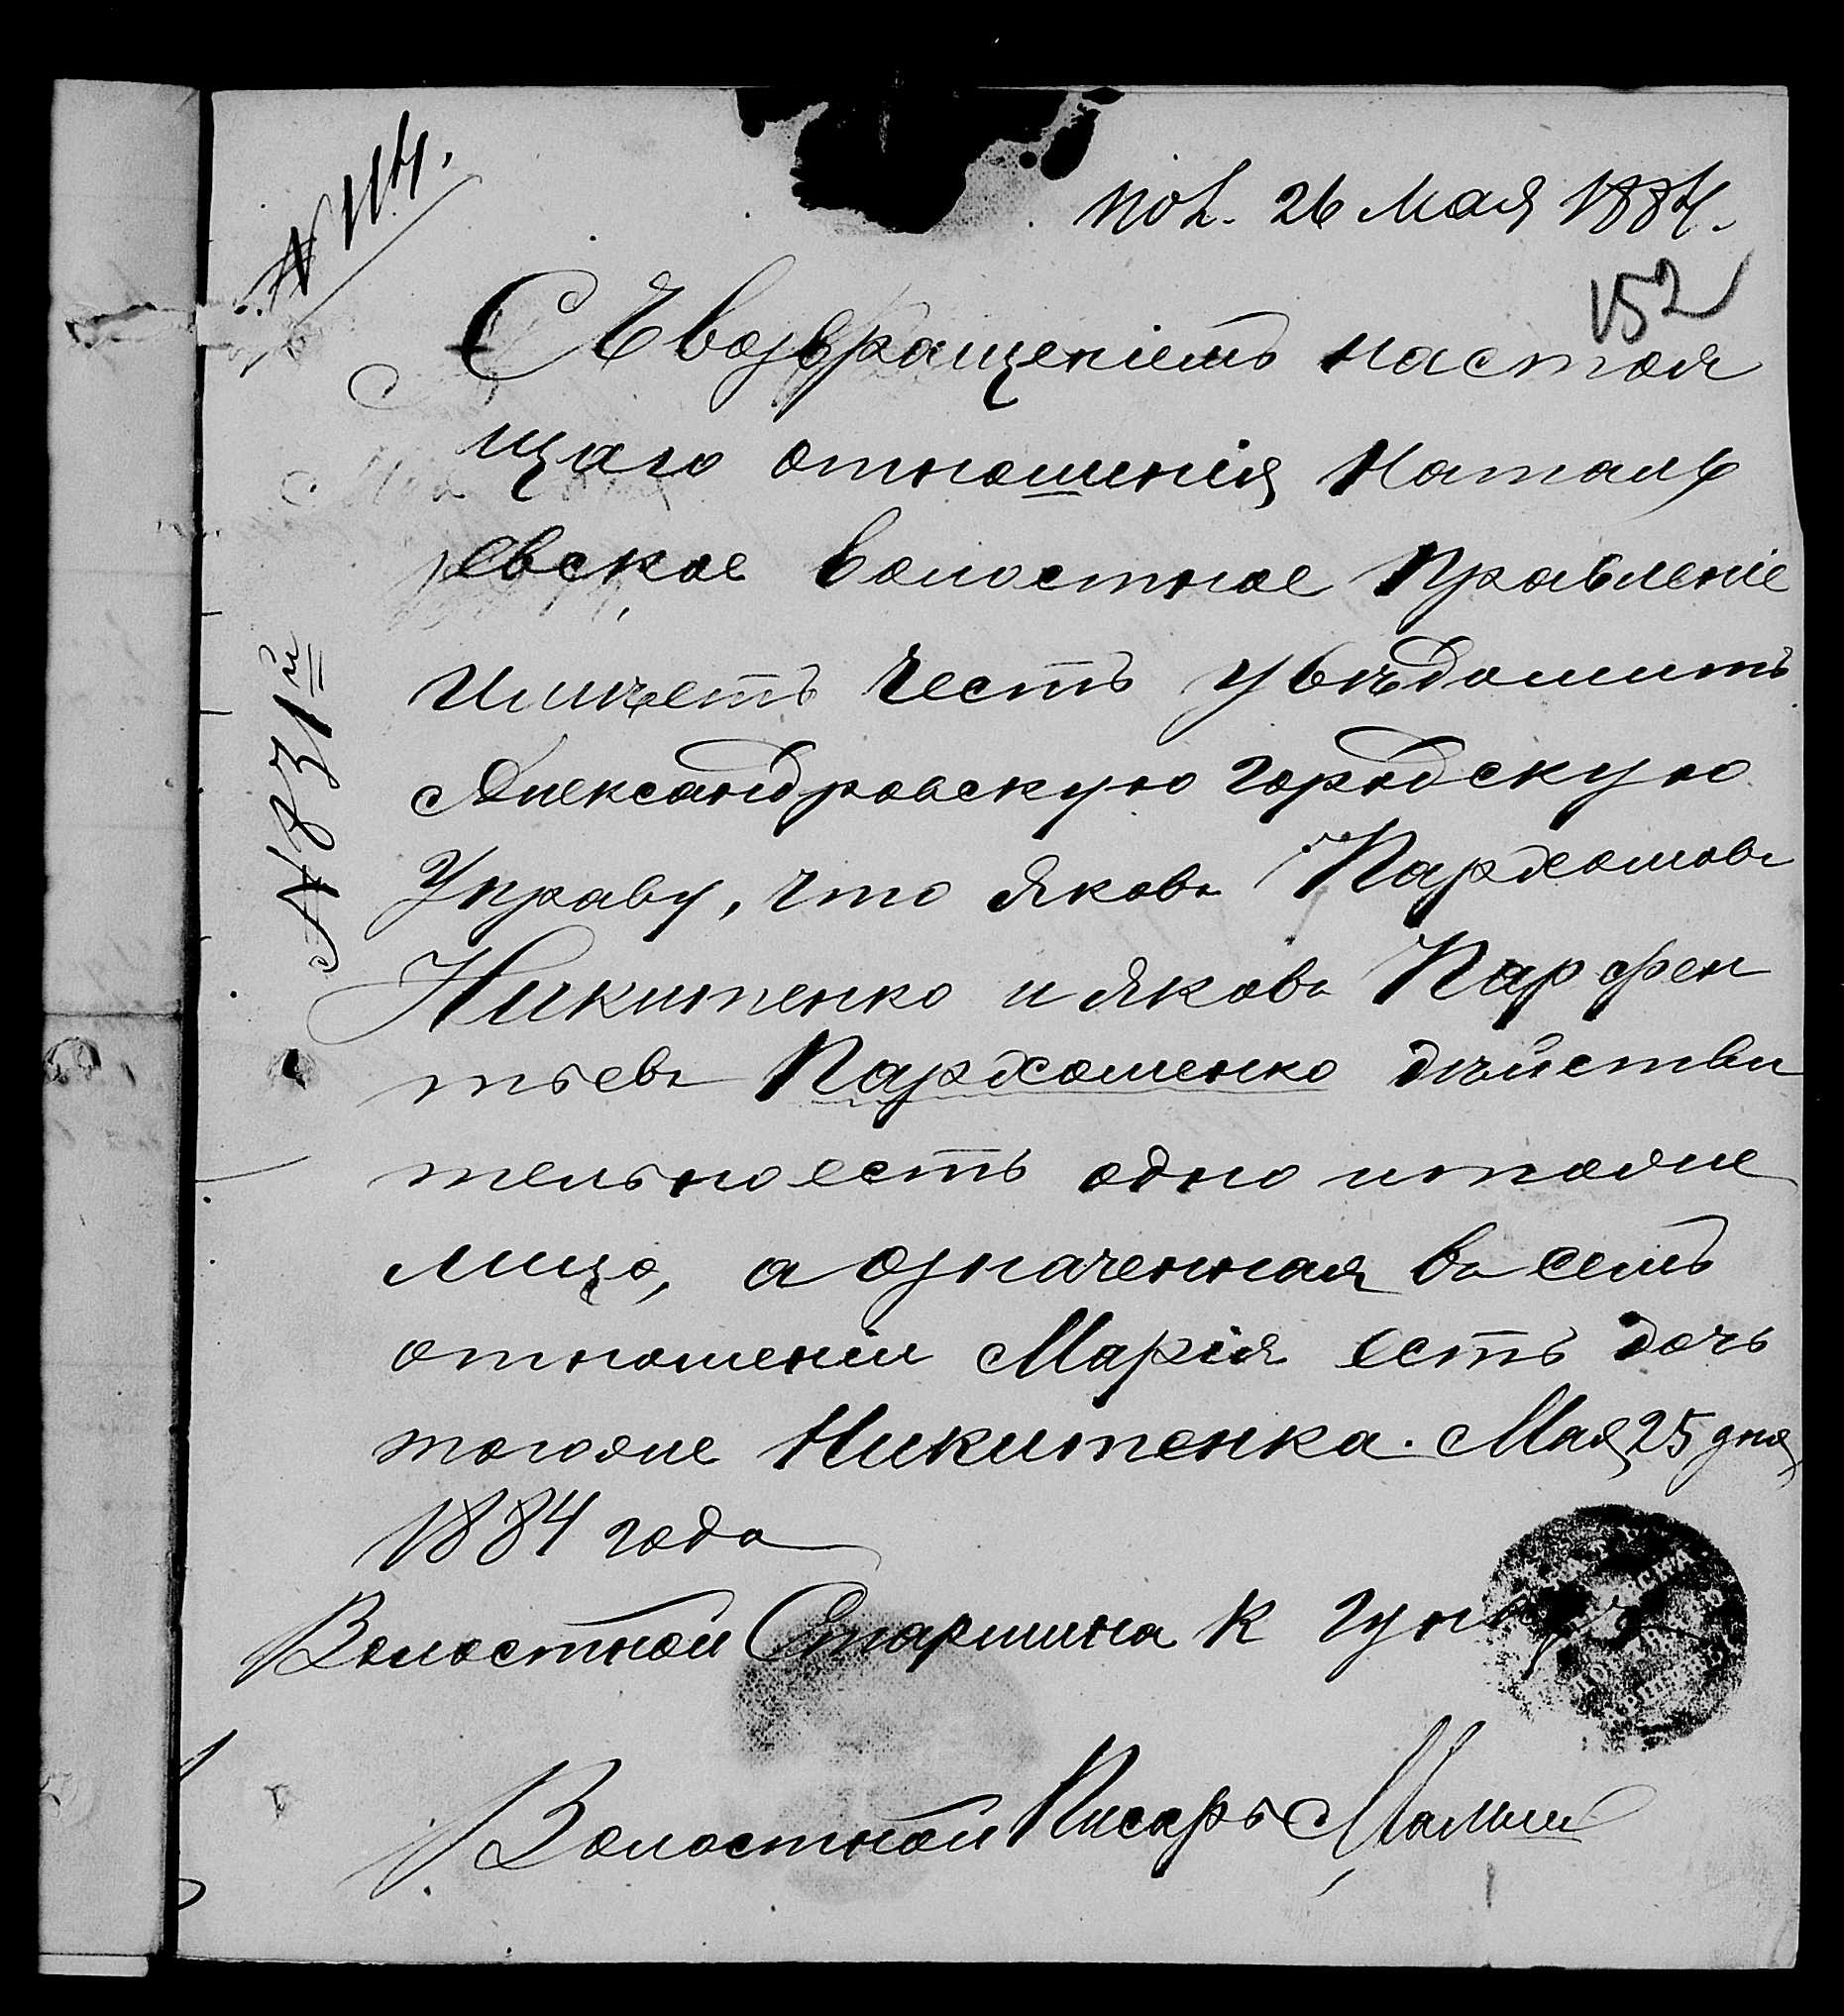 № 114.
пол. 26 Мая 1884.
152
Съ возвращеніемъ настоя
щаго отношенія Наталь
евское Волостное Правленіе
имѣетъ честь увѣдомить
Александровскую городскую
Управу, что Яковъ Пархомовъ
Никитенко и Яковъ Парфен
тьевъ Пархоменко дѣйстви
тельно есть одно и тоже
лицо, а означенная въ семъ
отношеніи Марія есть дочь
тогоже Никитенка. Мая 25 дня
1884 года
№ 831й
Волостной Старшина К
Волостной Писарь